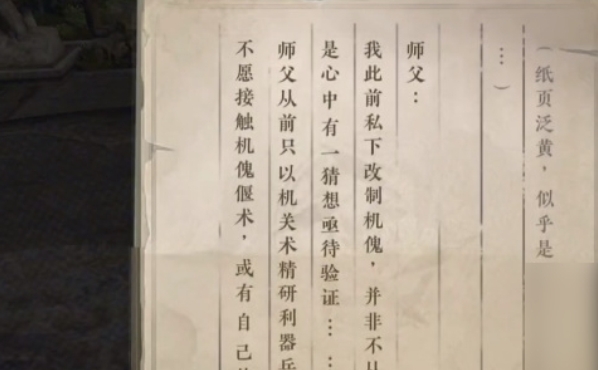 （纸页泛黄，似乎是
…）
师父：
我此前私下改制机傀，并非不
是心中有一猜想亟待验证……
师父从前只以机关术精研利器
不愿接触机傀偃术，或有自己